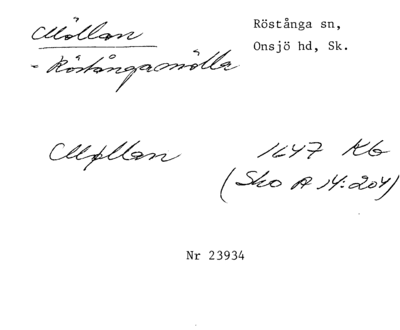 Möllan
= Röstångamölla
Röstånga sn,
Onsjö hd, Sk.
Møllan 1647 Kb
(Sko A 14:204)
Nr 23934